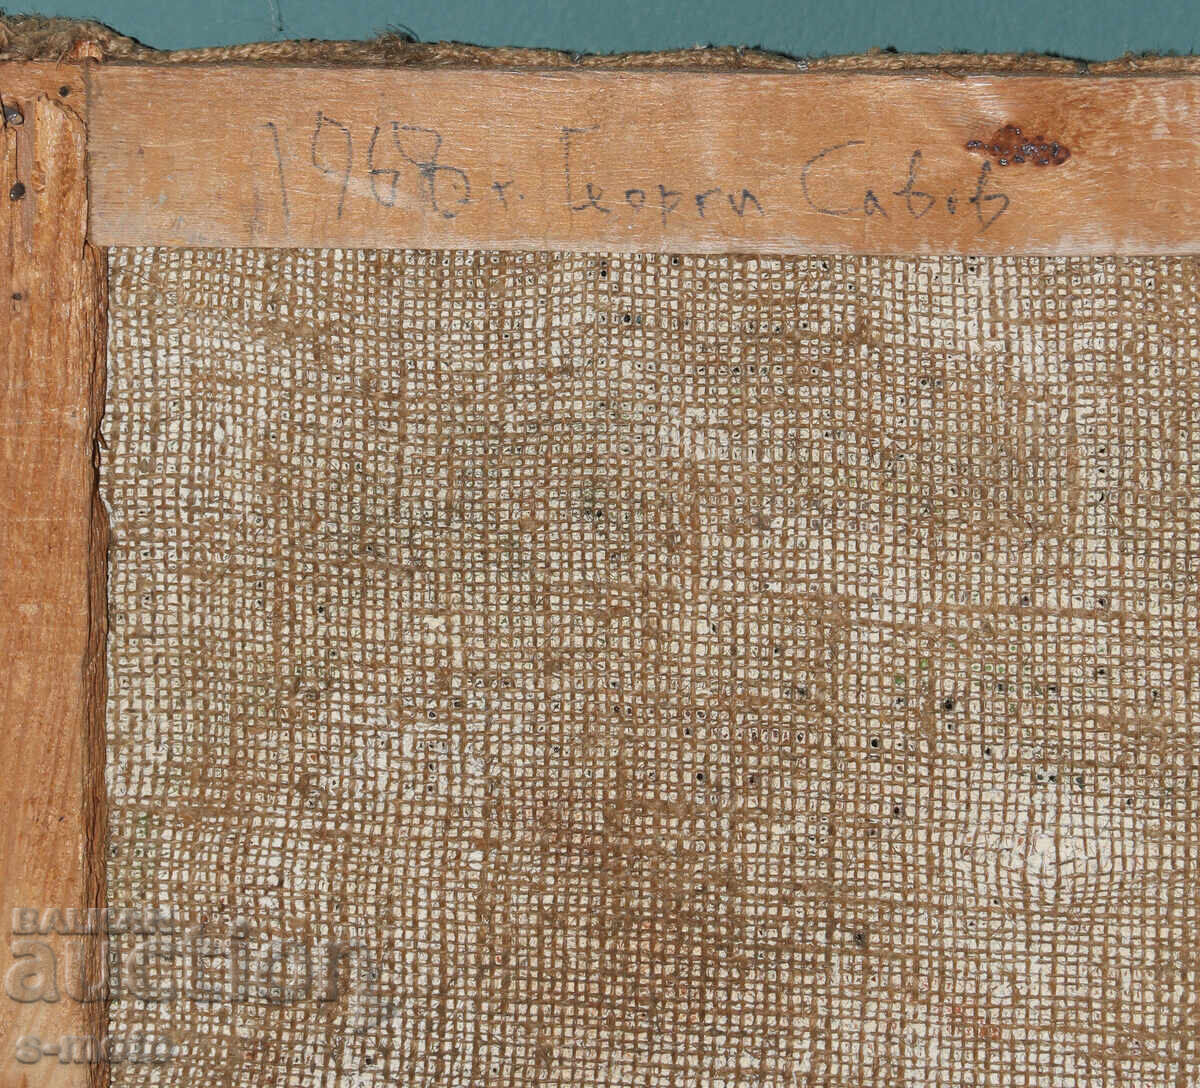 1968 г. Георги Савов
BALKAN
auction
s-moto